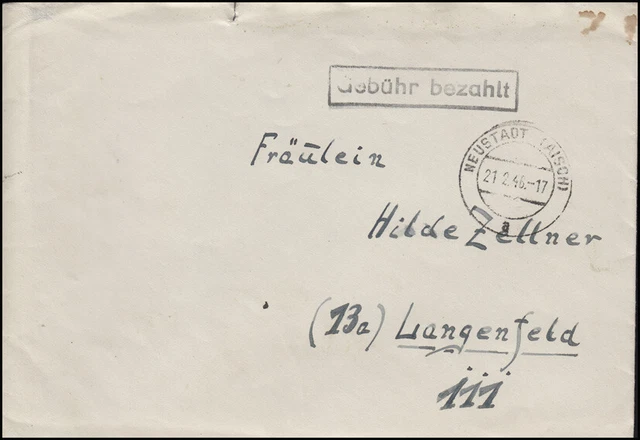 Gebühr bezahlt
NEUSTADT (AISCH)
21.2.46.-17
a
Fräulein
Hilde Zellner
(13a) Langenfeld
111